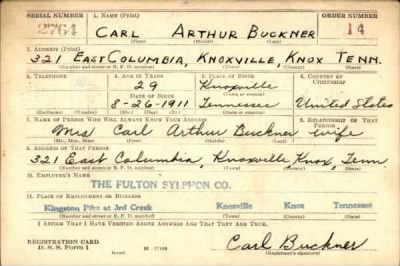 SERIAL NUMBER 1. NAME (Print) ORDER NUMBER
CARL ARTHUR BUCKNER 14
(First) (Middle) (Last)
2. ADDRESS (Print)
321 EAST COLUMBIA, KNOXVILLE, KNOX TENN.
(Number and street or R. F. D. number) (Town) (County) (State)
3. TELEPHONE 4. AGE IN YEARS 5. PLACE OF BIRTH 6. COUNTRY OF CITIZENSHIP
29 Knoxville
DATE OF BIRTH (Town or county)
8-26-1911 Tennessee United States
(Exchange) (No.) (Mo.) (Day) (Yr.) (State or country)
7. NAME OF PERSON WHO WILL ALWAYS KNOW YOUR ADDRESS 8. RELATIONSHIP OF THAT PERSON
Mrs Carl Arthur Buckner wife
(Mr., Mrs., Miss) (First) (Middle) (Last)
9. ADDRESS OF THAT PERSON
321 East Columbia, Knoxville Knox, Tenn
(Number and street or R. F. D. number) (Town) (County) (State)
10. EMPLOYER'S NAME
THE FULTON SYLPHON CO.
11. PLACE OF EMPLOYMENT OR BUSINESS
Kingston Pike at 3rd Creek Knoxville Knox Tennessee
(Number and street or R. F. D. number) (Town) (County) (State)
I AFFIRM THAT I HAVE VERIFIED ABOVE ANSWERS AND THAT THEY ARE TRUE.
REGISTRATION CARD
D. S. S. Form 1 Carl Buckner
(Registrant's signature)